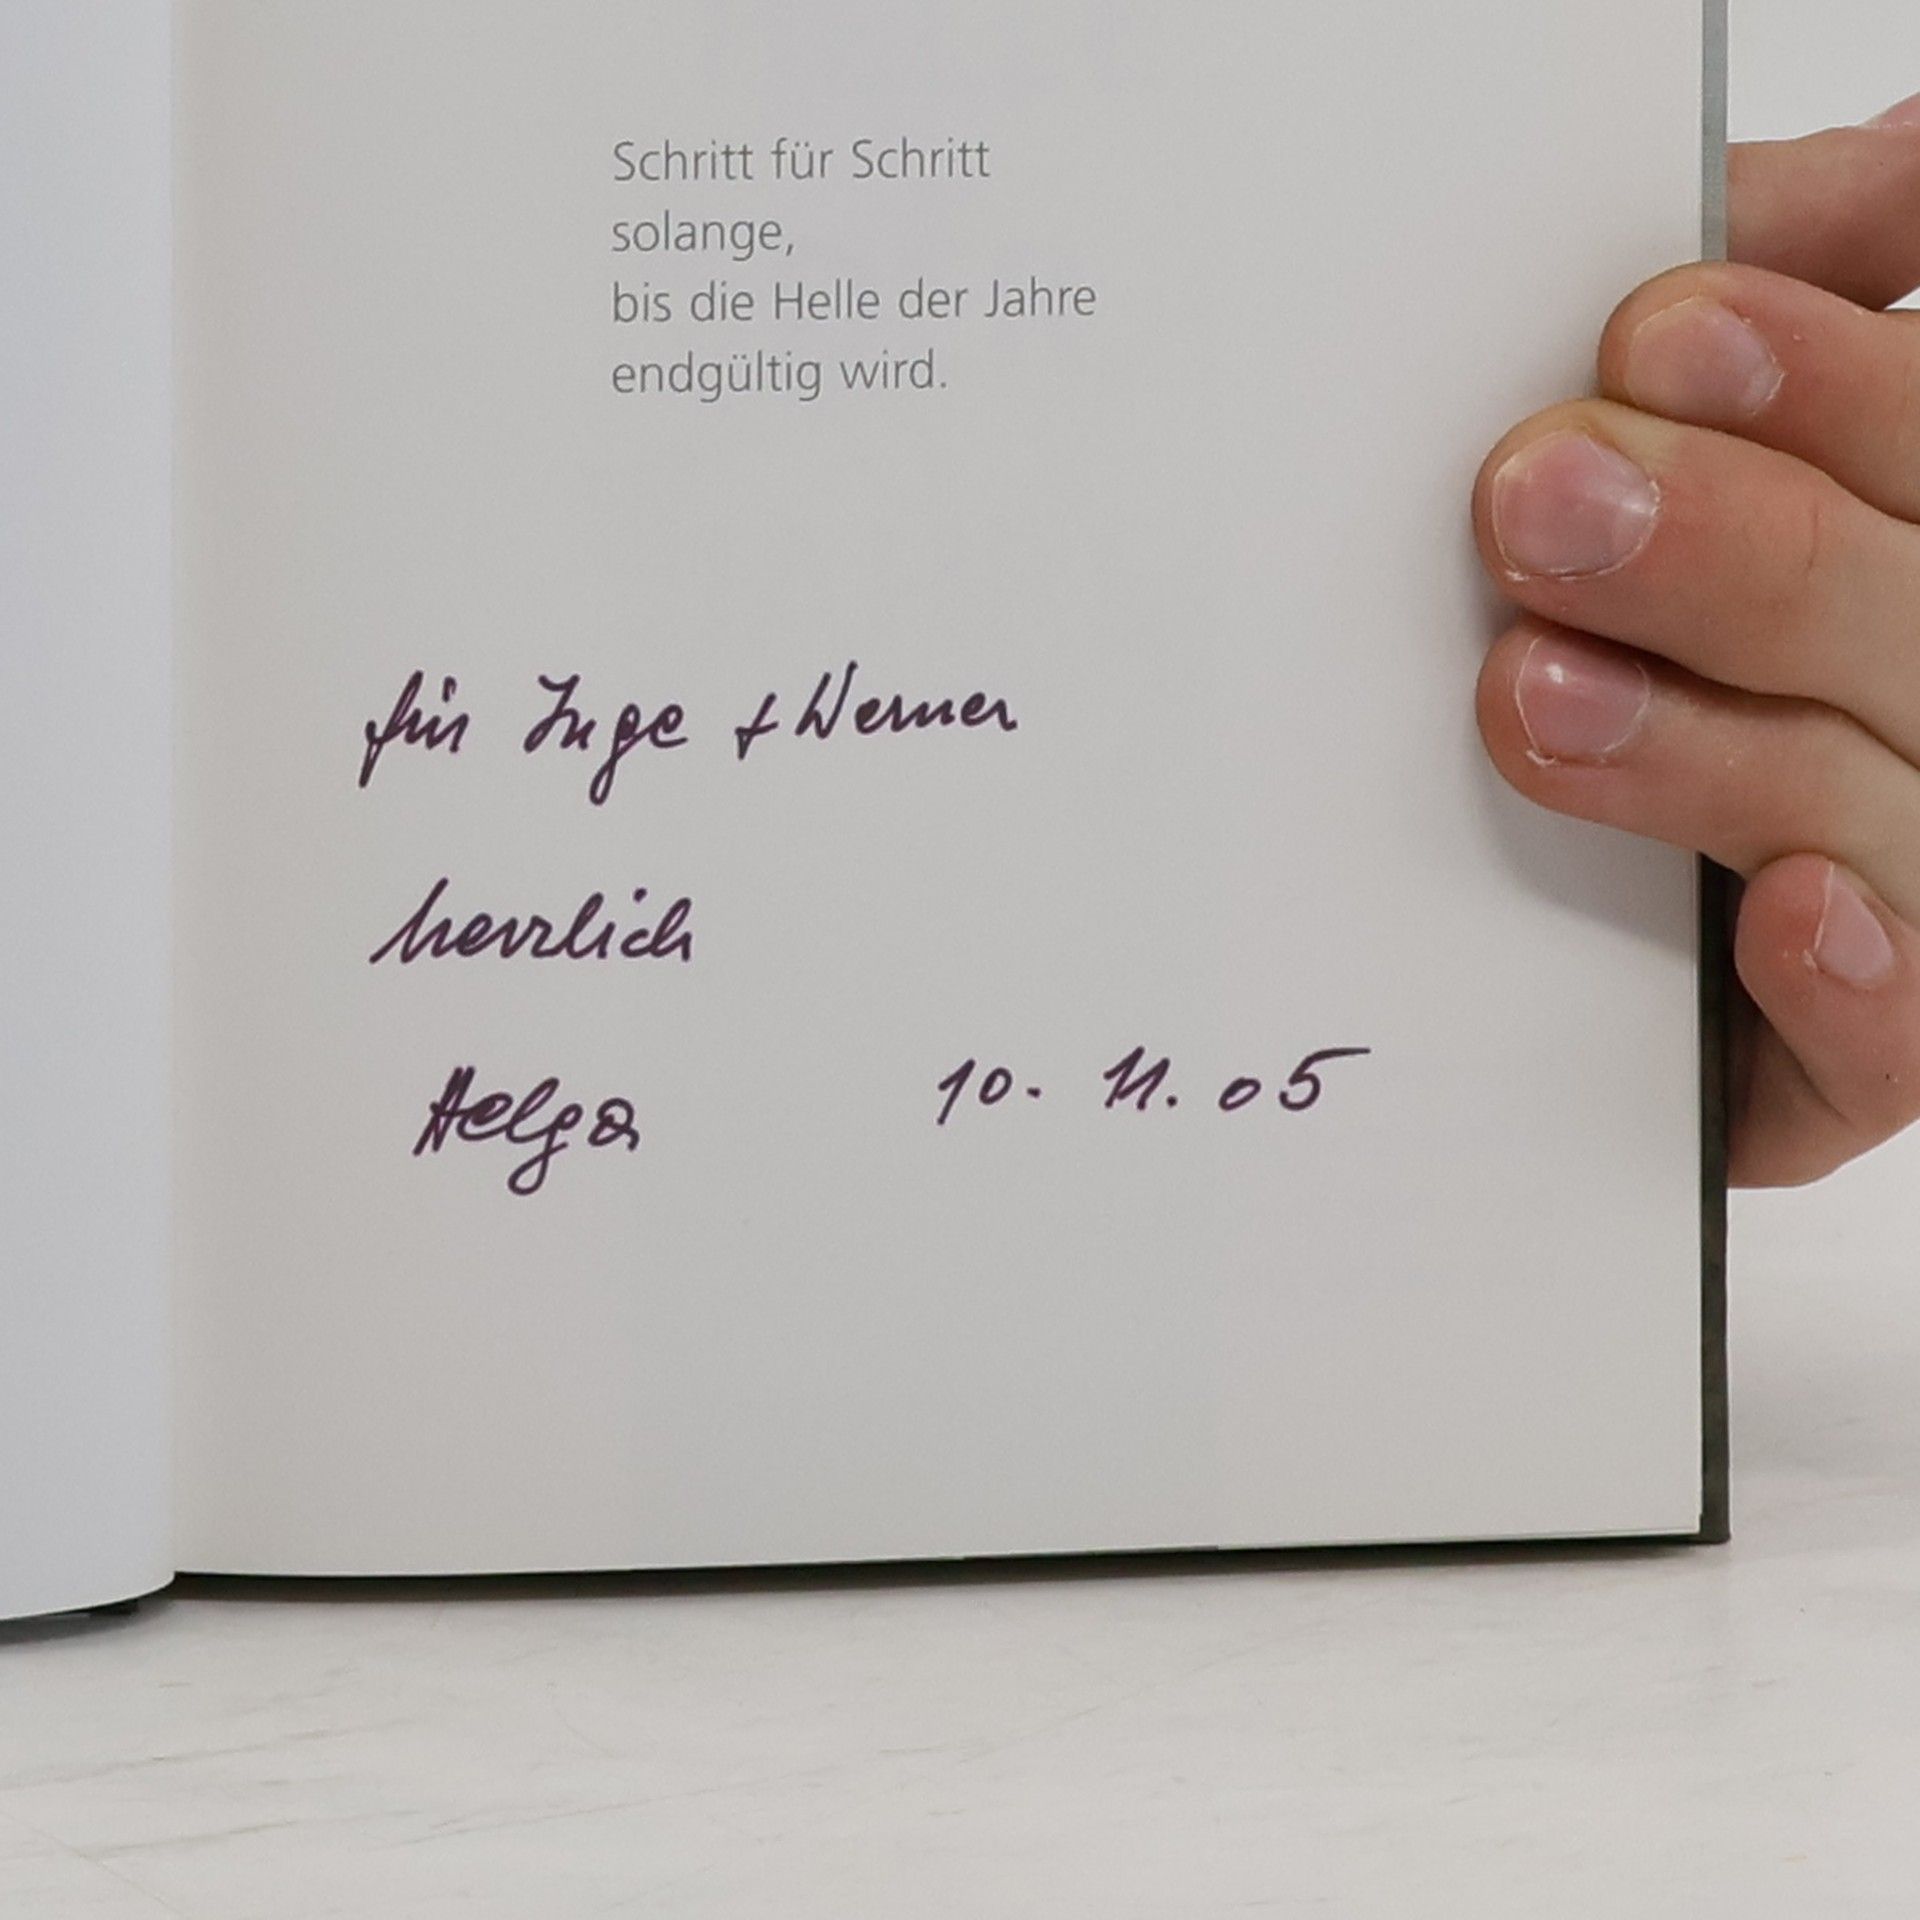 Schritt für Schritt
solange,
bis die Helle der Jahre
endgültig wird.
für Inge + Werner
herzlich
Helga 10. 11. 05